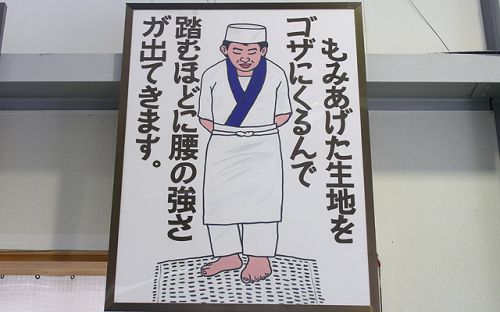 もみあげた生地を
ゴザにくるんで
踏むほどに腰の強さ
が出てきます。